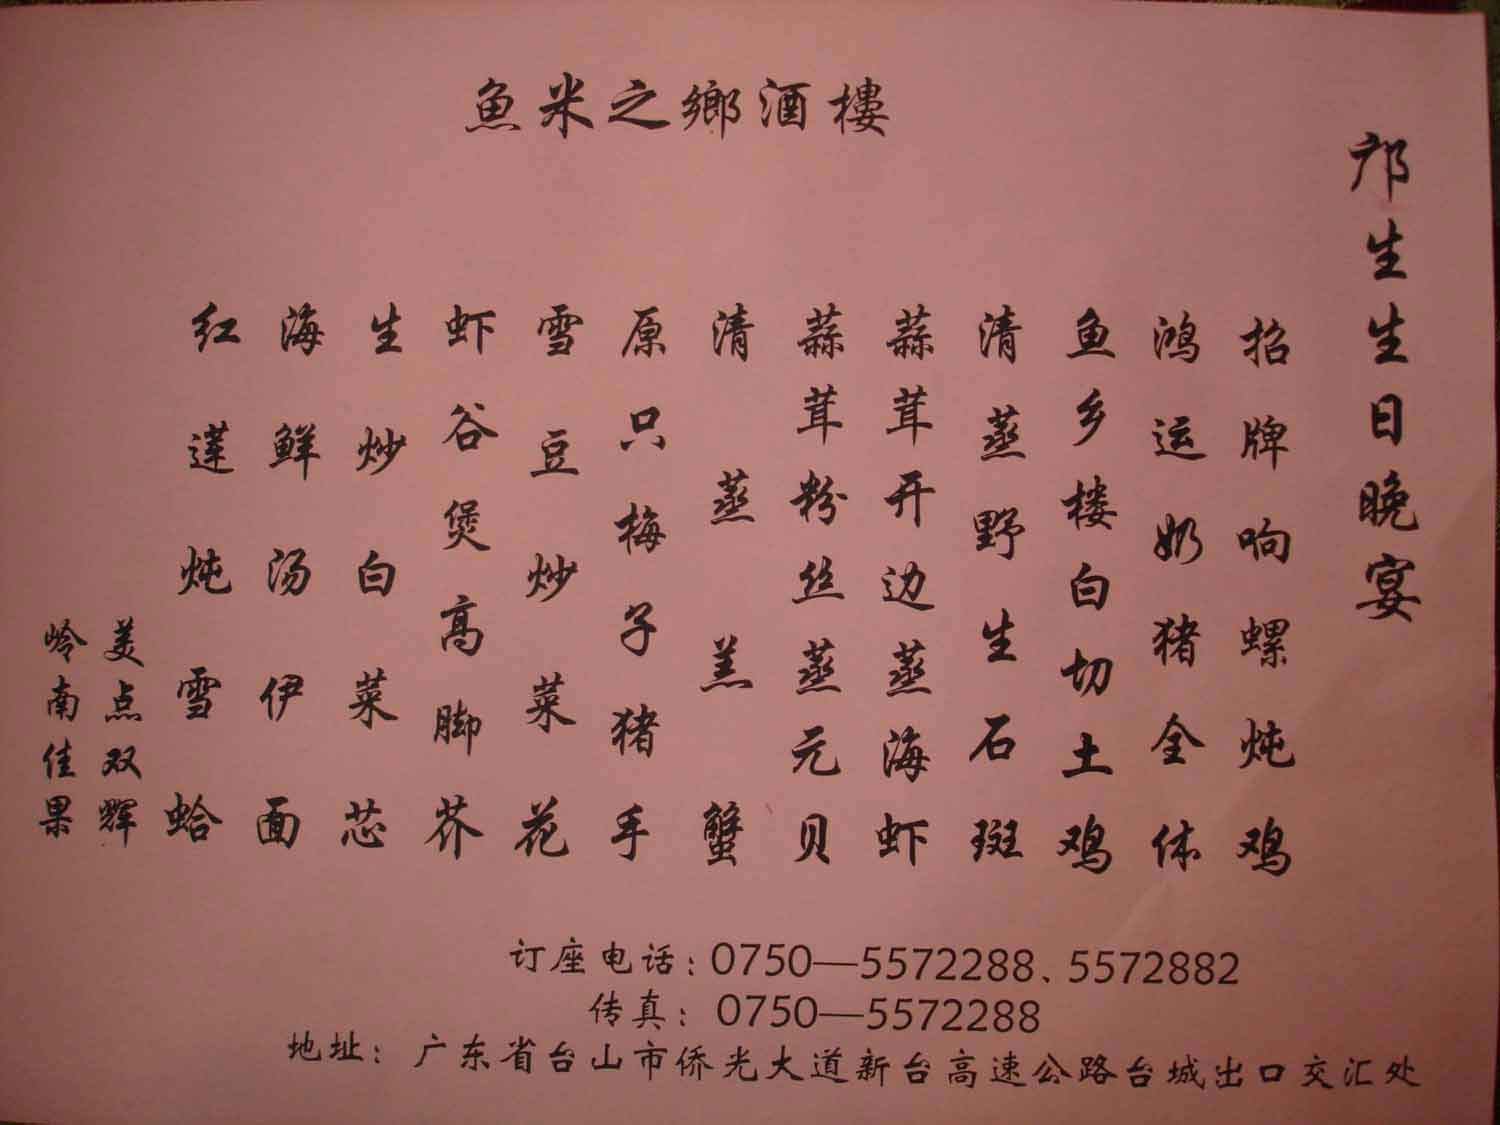 魚米之鄉酒樓
邝生生日晚宴
招牌响螺炖鸡
鸿运奶猪全体
鱼乡楼白切土鸡
清蒸野生石斑
蒜茸开边蒸海虾
蒜茸粉丝蒸元贝
清蒸羔蟹
原只梅子猪手
雪豆炒菜花
虾谷煲高脚芥
生炒白菜芯
海鲜汤伊面
红莲炖雪蛤
美点双辉
岭南佳果
订座电话：0750—5572288、5572882
传真：0750—5572288
地址：广东省台山市侨光大道新台高速公路台城出口交汇处